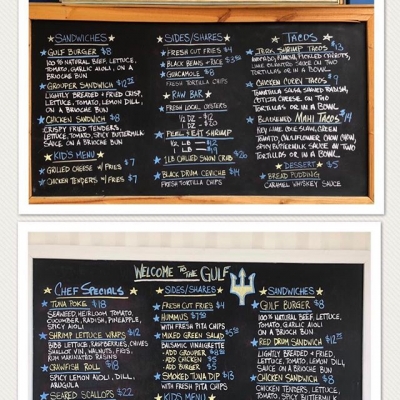 SANDWICHES
GULF BURGER $8
100% NATURAL BEEF, LETTUCE,
TOMATO, GARLIC AIOLI, ON A
BRIOCHE BUN
GROUPER SANDWICH
LIGHTLY BREADED & FRIED CRISP,
LETTUCE, TOMATO, LEMON DILL,
ON A BRIOCHE BUN
CHICKEN SANDWICH $8
CRISPY FRIED TENDERS,
LETTUCE, TOMATO, SPICY BUTTERMILK
SAUCE ON A BRIOCHE BUN
KID'S MENU
GRILLED CHEESE W/ FRIES $7
CHICKEN TENDERS W/ FRIES $7
SIDES/SHARES
FRESH CUT FRIES $4
BLACK BEANS + RICE
GUACAMOLE $8
FRESH TORTILLA CHIPS
RAW BAR
FRESH LOCAL OYSTERS
1/2 DZ - $12
1 DZ - $20
PEEL & EAT SHRIMP
1/2 LB - $12
1 LB - $19
1 LB CHILLED SNOW CRAB $20
BLACK DRUM CEVICHE $14
FRESH TORTILLA CHIPS
TACOS
SHRIMP TACOS $13
TORTILLAS OR IN A BOWL
CHICKEN CURRY TACOS $9
COTIJA CHEESE ON TWO
TORTILLAS OR IN A BOWL
BLACKENED MAHI TACOS $14
KEY LIME COLE SLAW, GREEN
TOMATO, CAULIFLOWER CHOW CHOW,
SPICY BUTTERMILK SAUCE ON TWO
TORTILLAS OR IN A BOWL
DESSERT $5
BREAD PUDDING
CARAMEL WHISKEY SAUCE
WELCOME TO THE GULF
CHEF SPECIALS
TUNA POKE $18
SEAWEED, HEIRLOOM TOMATO,
CUCUMBER, RADISH, PINEAPPLE,
SPICY AIOLI
SHRIMP LETTUCE WRAPS
BIBB LETTUCE, RASPBERRIES, CHIVES
SHALLOT VIN, WALNUTS, FIGS,
RUM MARINATED RAISINS
CRAWFISH ROLL $18
SPICY LEMON AIOLI, DILL,
ARUGULA
SEARED SCALLOPS $22
SIDES/SHARES
FRESH CUT FRIES $4
HUMMUS
WITH FRESH PITA CHIPS
MIXED GREEN SALAD
BALSAMIC VINAIGRETTE
- ADD GROUPER
- ADD CHICKEN
- ADD BURGER $5
SMOKED TUNA DIP $13
WITH FRESH PITA CHIPS
KIDS MENU
SANDWICHES
GULF BURGER $8
100% NATURAL BEEF, LETTUCE,
TOMATO, GARLIC AIOLI
ON A BRIOCHE BUN
RED DRUM SANDWICH
LIGHTLY BREADED & FRIED,
LETTUCE, TOMATO, LEMON DILL,
ON A BRIOCHE BUN
CHICKEN SANDWICH $8
CHICKEN TENDERS, LETTUCE,
TOMATO, SPICY BUTTERMILK